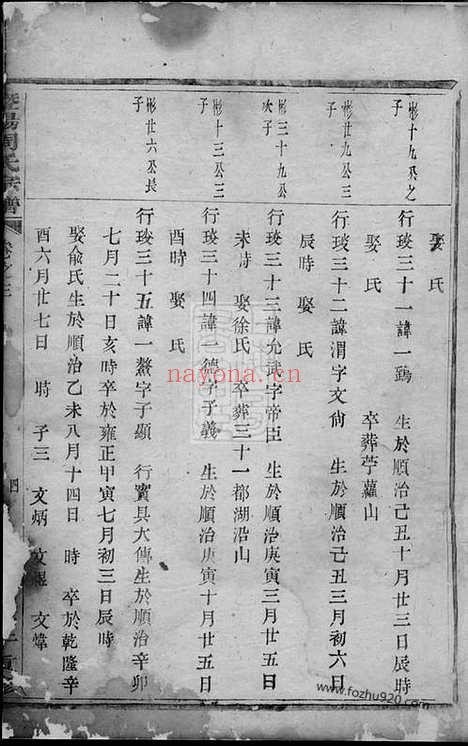 娶氏
彬十九公之子
行琰三十一諱一鶚　生於順治己丑十月廿三日辰時
娶氏　卒葬苧蘿山
彬廿九公三子
行琰三十二諱渭字文尙　生於順治己丑三月初六日
辰時　娶　氏
彬三十九公次子
行琰三十三諱允武字帝臣　生於順治庚寅三月廿五日
未時　娶徐氏　卒葬三十一都湖沿山
彬十三公三子
行琰三十四諱一德字子義　生於順治庚寅十月廿五日
酉時　娶　氏
彬廿六公長子
行琰三十五諱一鰲字子顯　行實具大傳生於順治辛卯
七月二十日亥時卒於雍正甲寅七月初三日辰時
娶俞氏生於順治乙未八月十四日　時　卒於乾隆辛
酉六月廿七日　時　子三　文炳　文煜　文煒
暨陽周氏宗譜
nayona.cn
www.fozhu920.com